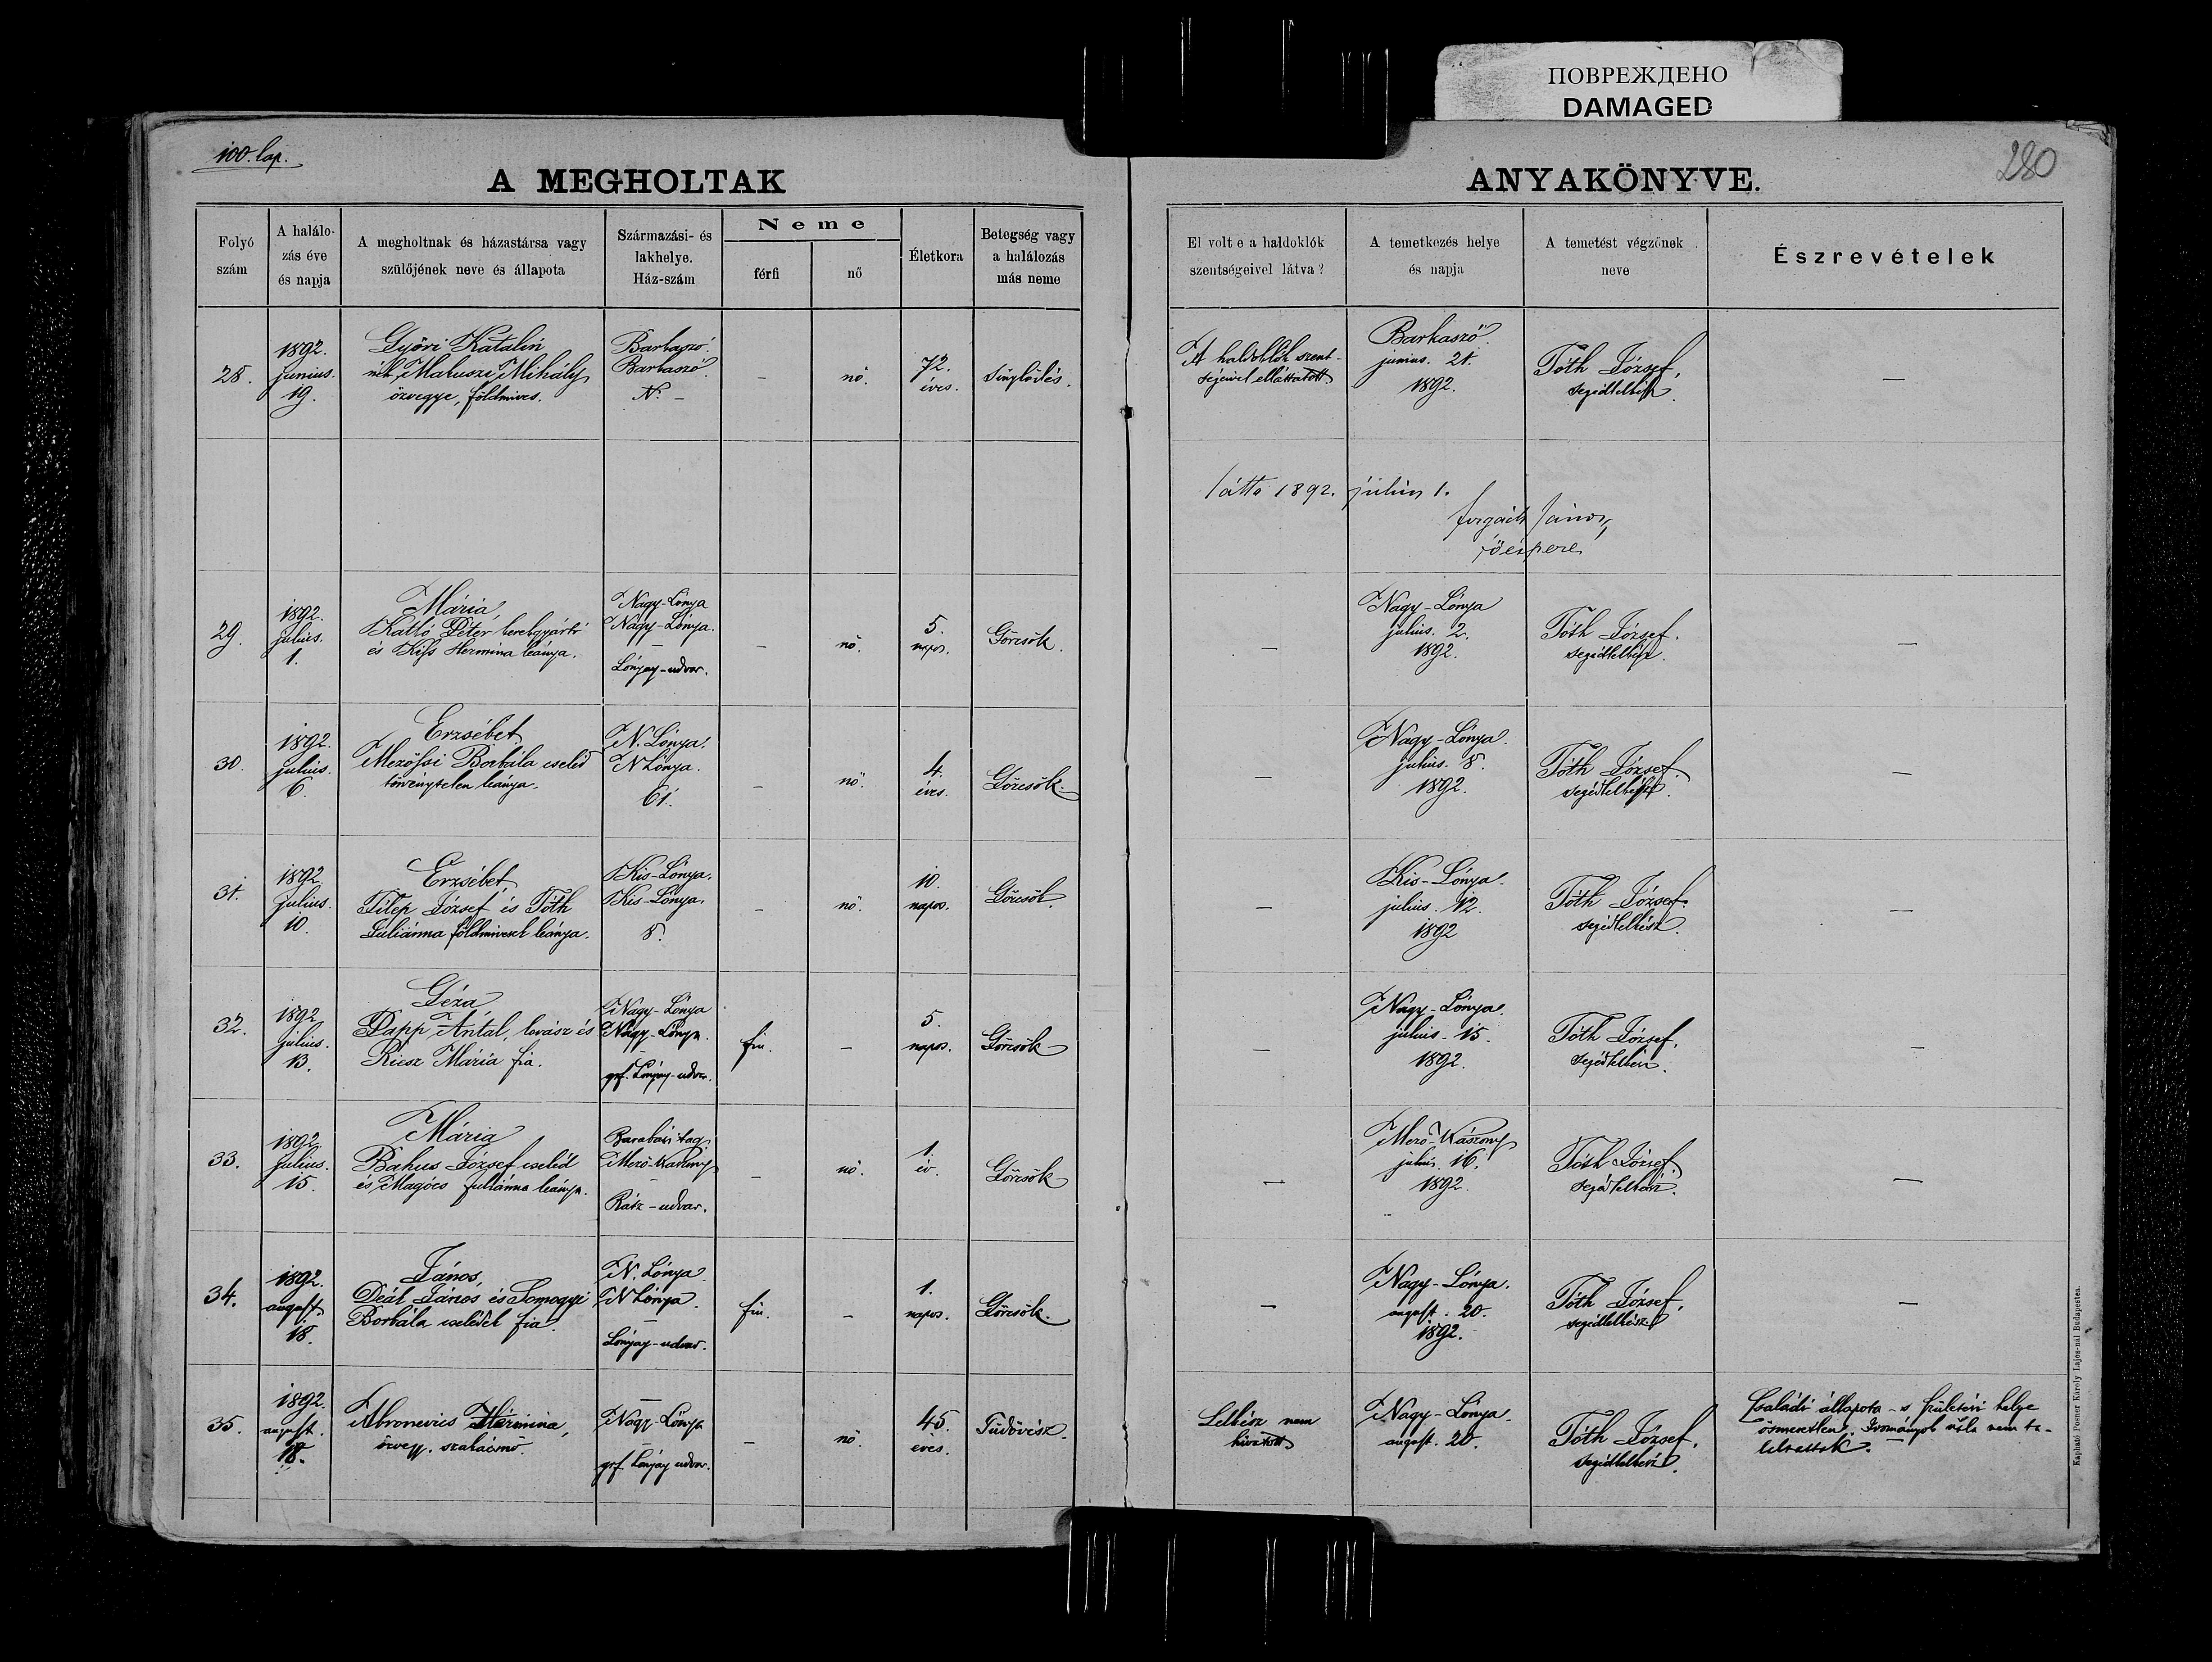 ПОВРЕЖДЕНО
DAMAGED
100. lap.
280
A MEGHOLTAK
ANYAKÖNYVE.
Folyó szám
A halálo-
zás éve
és napja
A megholtnak és házastársa vagy
szülőjének neve és állapota
Származási- és
lakhelye.
Ház-szám
Neme
férfi
nő
Életkora
Betegség vagy
a halálozás
más neme
El volt e a haldoklók
szentségeivel látva?
A temetkezés helye
és napja
A temetést végzőnek
neve
Észrevételek
28.
1892.
junius.
19.
Győri Katalin
néh. Makuszi Mihály
özvegye, földmives.
Barkaszó.
Barkaszó.
N. –
–
nő.
72.
éves.
Sinylődés.
A haldoklók szent-
ségeivel elláttatott
Barkaszó.
junius. 21.
1892.
Tóth József,
segédlelkész.
–
Látta 1892. július 1.
Forgách János,
főesperes
29.
1892.
julius.
1.
Mária,
Katló Péter
és Kiss Hermina leánya.
Nagy-Lónya
Nagy-Lónya.
–
Lónyay-udvar.
–
nő.
5.
napos.
Görcsök.
–
Nagy-Lónya
julius. 2.
1892.
Tóth József.
segédlelkész.
–
30.
1892.
julius.
6.
Erzsébet
Mezőssi Borbála cseléd
törvénytelen leánya.
N. Lónya.
N Lónya.
61.
–
nő.
4.
éves.
Görcsök.
–
Nagy-Lónya.
julius. 8.
1892.
Tóth József.
segédlelkész.
–
31.
1892
julius.
10.
Erzsébet
Filep József és Tóth
Juliánna földmivesek leánya.
Kis-Lónya.
Kis-Lónya.
8.
–
nő.
10.
napos.
Görcsök.
–
Kis-Lónya.
julius. 12.
1892
Tóth József.
segédlelkész.
–
32.
1892
julius.
13.
Géza
Papp Antal, lovász és
Riesz Mária fia.
Nagy-Lónya
Nagy-Lónya.
–
grf. Lónyay-udvar.
fiu.
–
5.
napos.
Görcsök
–
Nagy-Lónya.
julius. 15.
1892.
Tóth József,
segédlelkész.
–
33.
1892
julius.
15.
Mária
Bakus József cseléd
és Magócs Juliánna leánya.
Barabási tag.
Mező-Kaszony
–
Rátz-udvar.
–
nő.
1.
év.
Görcsök
–
Mező-Kászony
julius. 16.
1892.
Tóth József.
segédlelkész.
–
34.
1892.
august.
18.
János,
Deák János és Somogyi
Borbála cselédek fia.
N. Lónya.
N Lónya.
–
Lónyay-udvar.
fiu.
–
1.
napos.
Görcsök.
–
Nagy-Lónya.
august. 20.
1892.
Tóth József,
segédlelkész.
–
35.
1892.
august.
18.
Abronevics Hermina,
özvegy. szakácsnő.
–
Nagy-Lónya
–
grf. Lónyay udvar.
–
nő.
45.
éves.
Tüdővész.
Lelkész nem
hivatott
Nagy-Lónya.
august. 20.
Tóth József,
segédlelkész.
Családi állapota – s születési helye
ösmeretlen. Irományok nála nem ta-
láltattak.
Kapható Posner Károly Lajos-nál Budapesten.